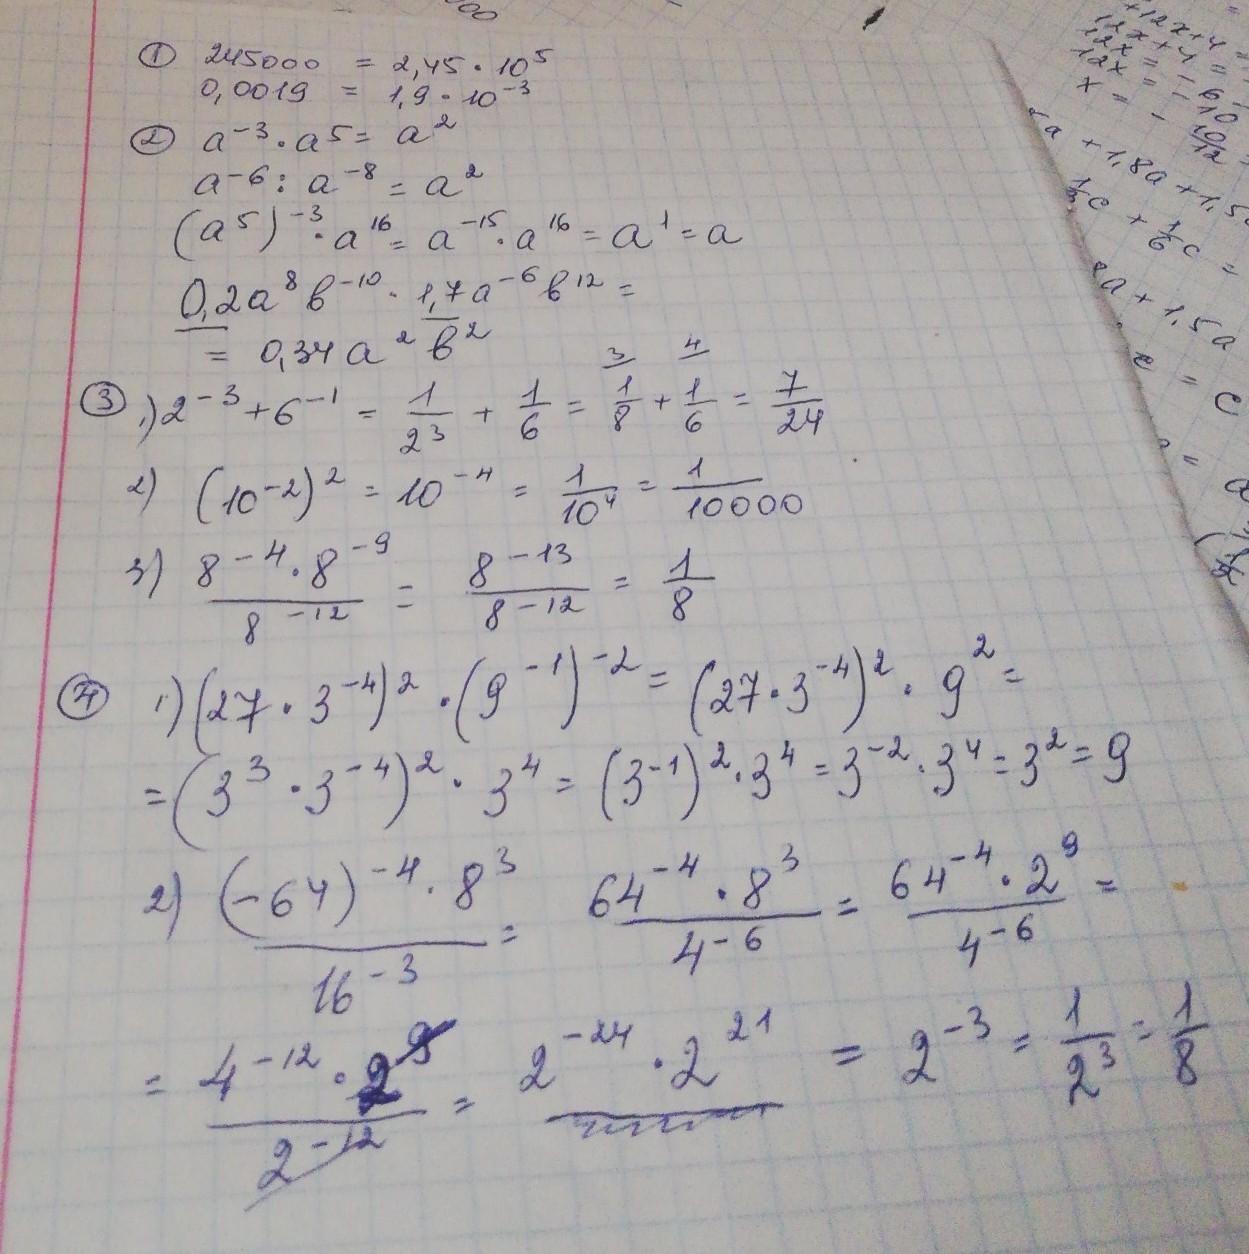 ① 245000 = 2,45 · 10⁵
0,0019 = 1,9 · 10⁻³
② a⁻³ · a⁵ = a²
a⁻⁶ : a⁻⁸ = a²
(a⁵)⁻³ · a¹⁶ = a⁻¹⁵ · a¹⁶ = a¹ = a
0,2a⁸b⁻¹⁰ · 1,7a⁻⁶b¹² =
= 0,34a²b²
③ 1) 2⁻³ + 6⁻¹ = 1/2³ + 1/6 = ³1/8 + ⁴1/6 = 7/24
2) (10⁻²)² = 10⁻⁴ = 1/10⁴ = 1/10000
3) 8⁻⁴ · 8⁻⁹ / 8⁻¹² = 8⁻¹³ / 8⁻¹² = 1/8
④ 1) (27 · 3⁻⁴)² · (9⁻¹)⁻² = (27 · 3⁻⁴)² · 9² =
= (3³ · 3⁻⁴)² · 3⁴ = (3⁻¹)² · 3⁴ = 3⁻² · 3⁴ = 3² = 9
2) (-64)⁻⁴ · 8³ / 16⁻³ = 64⁻⁴ · 8³ / 4⁻⁶ = 64⁻⁴ · 2⁹ / 4⁻⁶ =
= 4⁻¹² · 2⁹ / 2⁻¹² = 2⁻²⁴ · 2²¹ = 2⁻³ = 1/2³ = 1/8
+12x+4=
12x+4=
12x = -6-
12x = -10
x = -10/12
a + 1,8a + 1,5
1/3c + 1/6c =
a + 1,5a
c = c